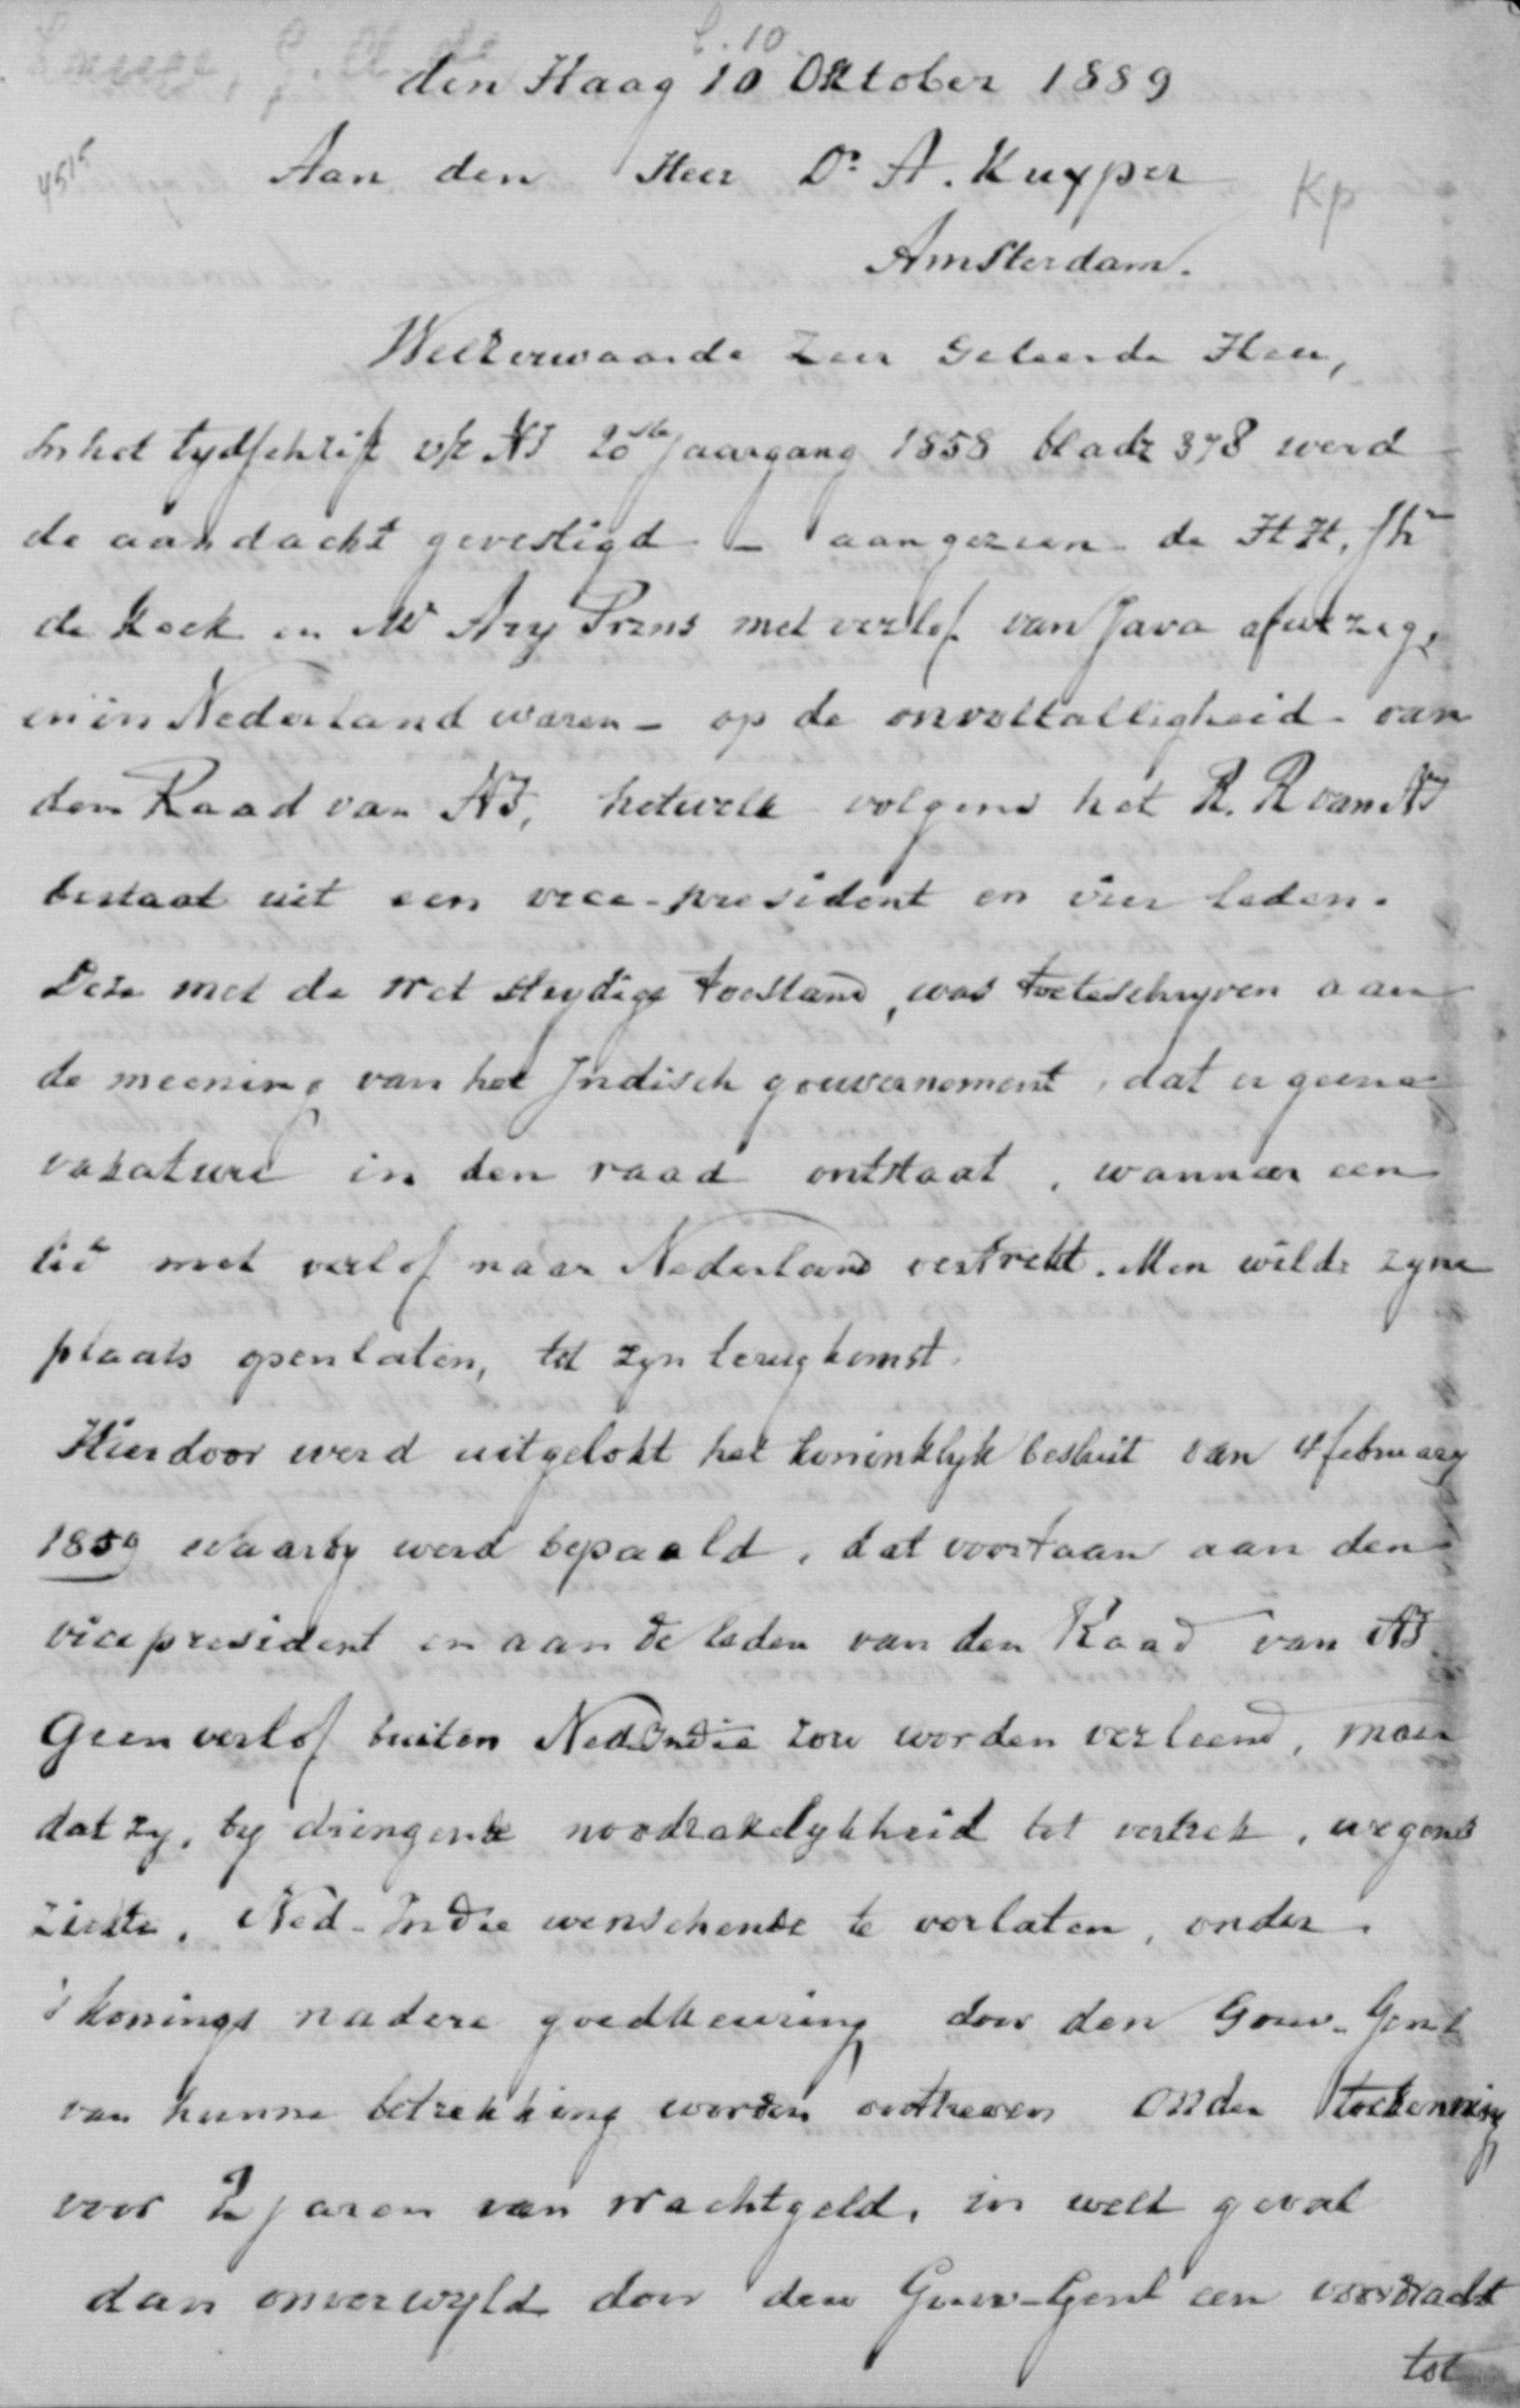 C. 10
den Haag 10 Oktober 1889
4515
Aan den Heer Dr A. Kuyper
Kp
Amsterdam.
Weleerwaarde Zeer Geleerde Heer,
In het tydschrift v/z NI 20ste Jaargang 1858 bladz 378 werd
de aandacht gevestigd - aangezien de HH. Jhr
de Kock en Mr Ary Prins met verlof van Java afwezig,
en in Nederland waren - op de onvoltalligheid van
den Raad van NI, hetwelk volgens het R. R van NI
bestaat uit een vice-president en vier leden.
Deze met de wet strydige toestand, was toeteschryven aan
de meening van het Indisch gouvernement, dat er geene
vakature in den raad ontstaat, wanneer een
lid met verlof naar Nederland vertrekt. Men wilde zyne
plaats openlaten, tot zyn terugkomst.
Hierdoor werd uitgelokt het koninklyk besluit van 4 february
1859 waarby werd bepaald, dat voortaan aan den
vicepresident en aan de leden van den Raad van NI
Geen verlof buiten Ned Indie zou worden verleend, maar
dat zy, by dringende noodzakelykheid tot vertrek, wegens
ziekte, Ned-Indie wenschende te verlaten, onder
's konings nadere goedkeuring door den Gouv-Genl
van hunne betrekking worden ontheven onder toekenning
voor 2 jaren van wachtgeld, in welk geval
dan onverwyld door den Gouv-Genl een voordracht
tot